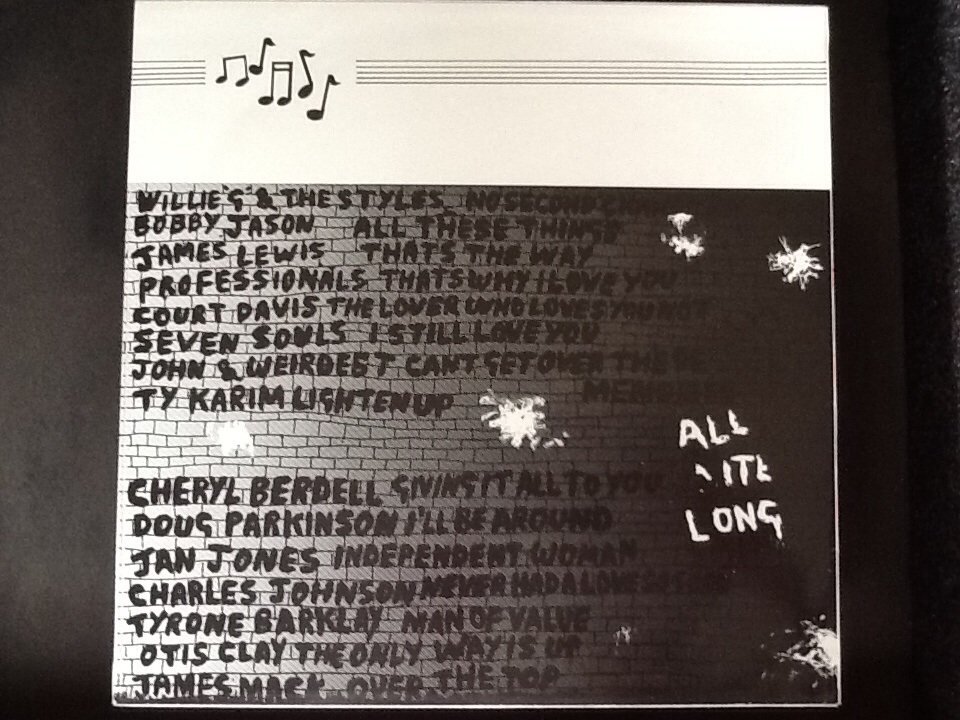 WILLIE'G' & THE STYLES NO SECOND
BOBBY JASON ALL THESE THINGS
JAMES LEWIS THATS THE WAY
PROFESSIONALS THATS WHY I LOVE YOU
COURT DAVIS THE LOVER WHO LOVES YOU NOT
SEVEN SOULS I STILL LOVE YOU
JOHN & WEIRDEST CANT GET OVER THE
TY KARIM LIGHTEN UP
CHERYL BERDELL GIVING IT ALL TO YOU
DOUG PARKINSON I'LL BE AROUND
JAN JONES INDEPENDENT WOMAN
CHARLES JOHNSON NEVER HAD A LOVE
TYRONE BARKLAY MAN OF VALUE
OTIS CLAY THE ONLY WAY IS UP
JAMES MACK OVER THE TOP
ALL
NITE
LONG